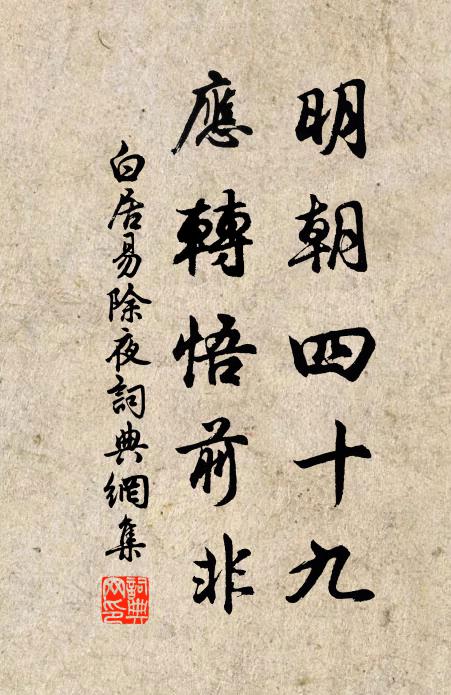 明朝四十九
應轉悟前非
白居易除夜詞典網集
詞典
网印